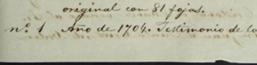 original con 81 fojas.
nº. 1 Año de 1704. Testimonio de la